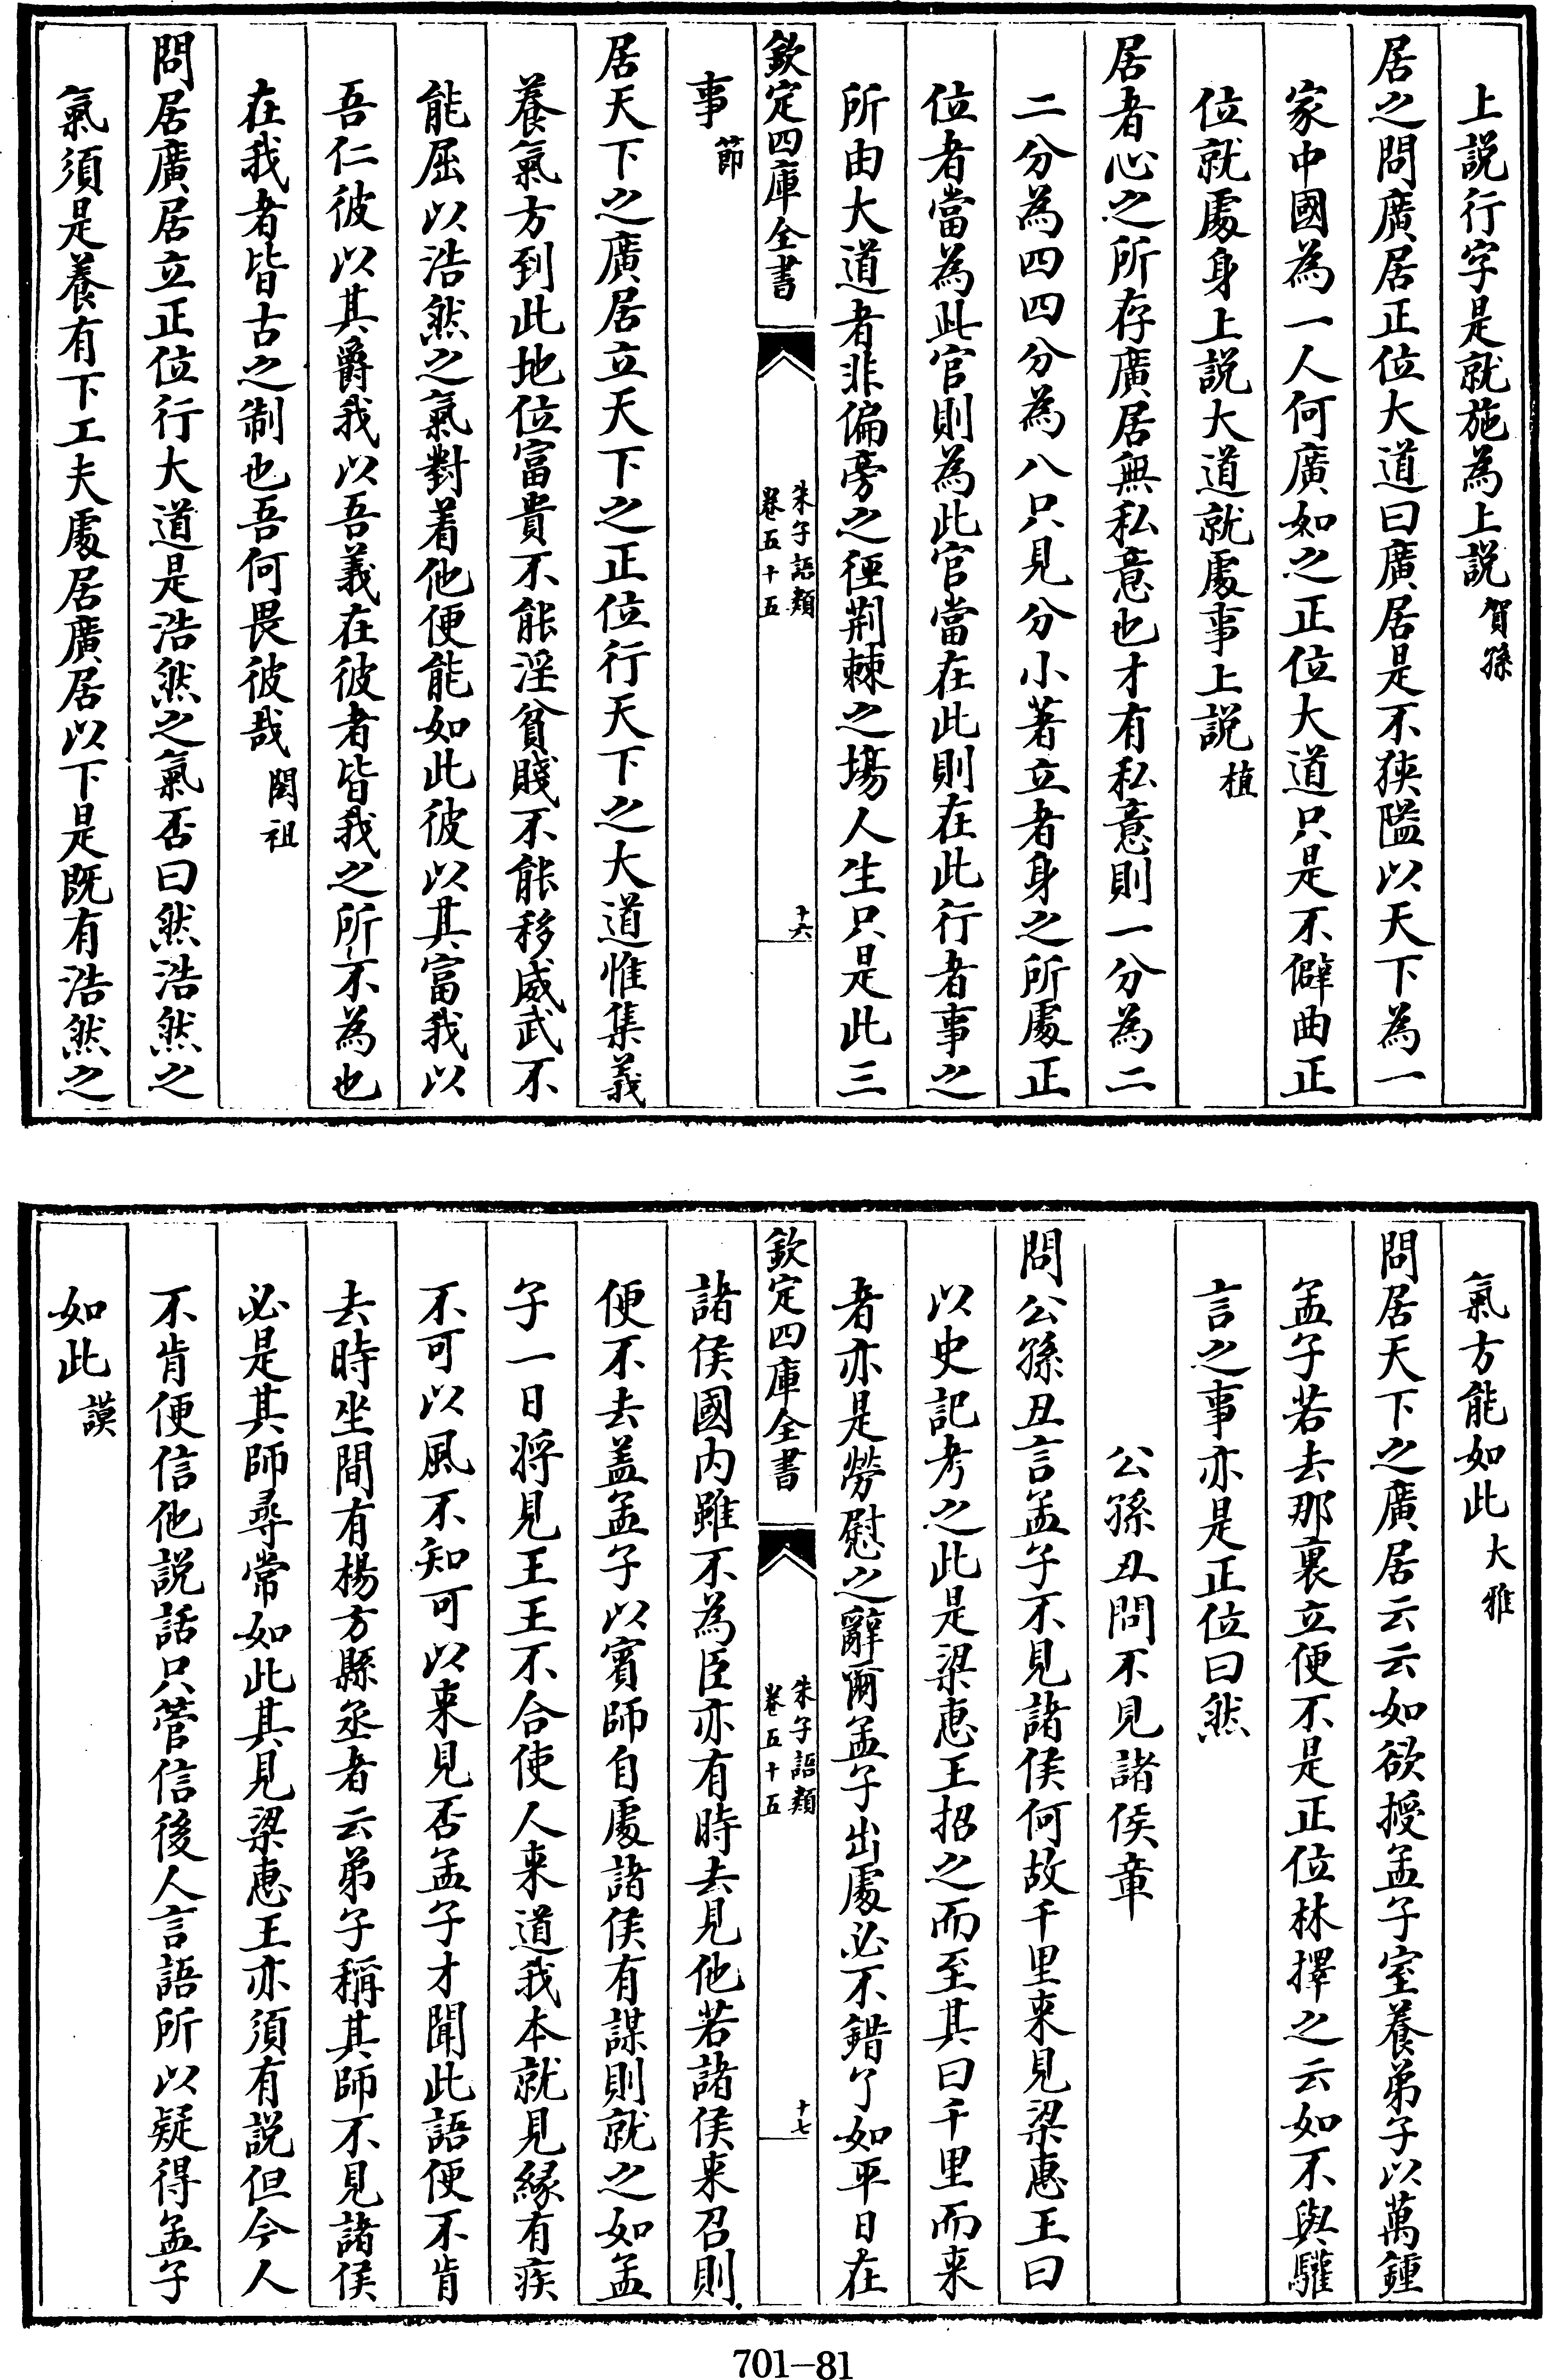 上説行字是就施為上説賀孫
居之問廣居正位大道曰廣居是不狹隘以天下為一
家中國為一人何廣如之正位大道只是不僻曲正
位就處身上説大道就處事上説植
居者心之所存廣居無私意也才有私意則一分為二
二分為四四分為八只見分小著立者身之所處正
位者當為此官則為此官當在此則在此行者事之
所由大道者非偏旁之徑荆棘之場人生只是此三
欽定四庫全書
朱子語類
卷五十五
十六
事節
居天下之廣居立天下之正位行天下之大道惟集義
養氣方到此地位富貴不能淫貧賤不能移威武不
能屈以浩然之氣對着他便能如此彼以其富我以
吾仁彼以其爵我以吾義在彼者皆我之所不為也
在我者皆古之制也吾何畏彼哉閎祖
問居廣居立正位行大道是浩然之氣否曰然浩然之
氣須是養有下工夫處居廣居以下是既有浩然之
氣方能如此大雅
問居天下之廣居云云如欲授孟子室養弟子以萬鍾
孟子若去那裏立便不是正位林擇之云如不與驩
言之事亦是正位曰然
公孫丑問不見諸侯章
問公孫丑言孟子不見諸侯何故千里来見梁惠王曰
以史記考之此是梁惠王招之而至其曰千里而来
者亦是勞慰之辭爾孟子出處必不錯了如平日在
欽定四庫全書
朱子語類
卷五十五
十七
諸侯國内雖不為臣亦有時去見他若諸侯来召則
便不去盖孟子以賓師自處諸侯有謀則就之如孟
子一日将見王王不合使人来道我本就見縁有疾
不可以風不知可以来見否孟子才聞此語便不肯
去時坐間有楊方縣丞者云弟子稱其師不見諸侯
必是其師尋常如此其見梁惠王亦須有説但今人
不肯便信他説話只管信後人言語所以疑得孟子
如此謨
701-81